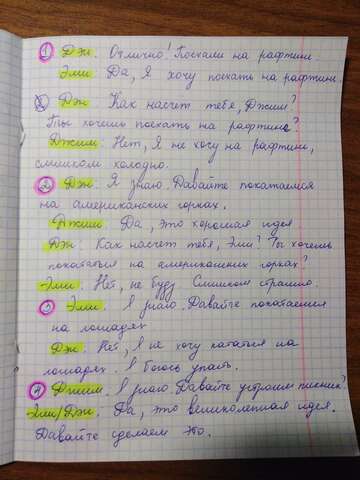 ① Дж. Отлично! Поехали на рафтинг.
Эми. Да, я хочу поехать на рафтинг.
② Дж Как насчет тебя, Джим?
Ты хочешь поехать на рафтинг?
Джим. Нет, я не хочу на рафтинг,
слишком холодно.
② Дж. Я знаю. Давайте покатаемся
на американских горках.
Джим. Да, это хорошая идея
Дж. Как насчет тебя, Эми? Ты хочешь
покататься на американских горках?
Эми. Нет, не буду. Слишком страшно.
③ Эми. Я знаю. Давайте покатаемся
на лошадях
Дж. Нет, я не хочу кататься на
лошадях. Я боюсь упасть.
④ Джим. Я знаю. Давайте устроим пикник?
Эми/Дж. Да, это великолепная идея.
Давайте сделаем это.